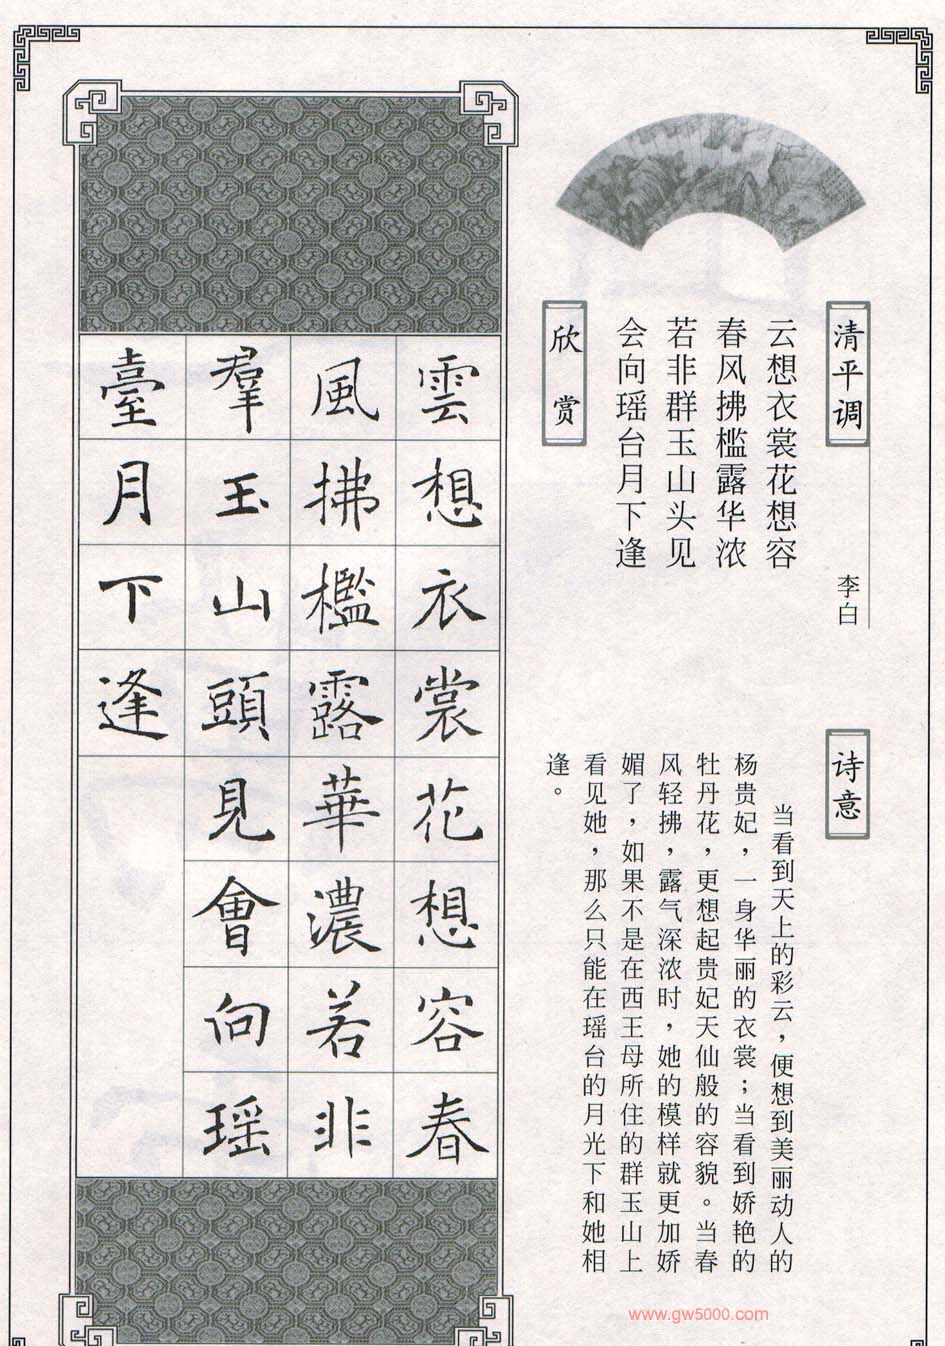 清平调
李白
云想衣裳花想容
春风拂槛露华浓
若非群玉山头见
会向瑶台月下逢
诗意
当看到天上的彩云，便想到美丽动人的
杨贵妃，一身华丽的衣裳；当看到娇艳的
牡丹花，更想起贵妃天仙般的容貌。当春
风轻拂，露气深浓时，她的模样就更加娇
媚了，如果不是在西王母所住的群玉山上
看见她，那么只能在瑶台的月光下和她相
逢。
欣赏
雲想衣裳花想容春
風拂檻露華濃若非
羣玉山頭見會向瑶
臺月下逢
www.gw5000.com